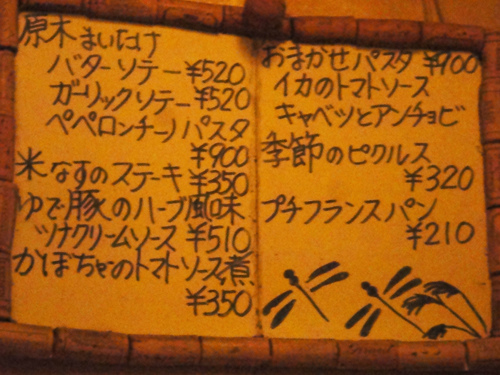 原木まいたけ
バターソテー¥520
ガーリックソテー¥520
ペペロンチーノパスタ
¥900
米なすのステーキ¥350
ゆで豚のハーブ風味
ツナクリームソース¥510
かぼちゃのトマトソース煮
¥350
おまかせパスタ¥900
イカのトマトソース
キャベツとアンチョビ
季節のピクルス
¥320
プチフランスパン
¥210